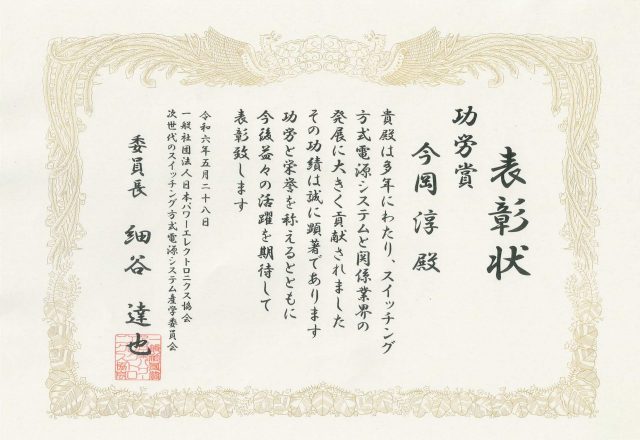 表彰状
功労賞
今岡 淳 殿
貴殿は多年にわたり、スイッチング
方式電源システムと関係業界の
発展に大きく貢献されました
その功績は誠に顕著であります
功労と栄誉を称えるとともに
今後益々の活躍を期待して
表彰致します
令和六年五月二十八日
一般社団法人日本パワーエレクトロニクス協会
次世代のスイッチング方式電源システム産学委員会
委員長 細谷 達也